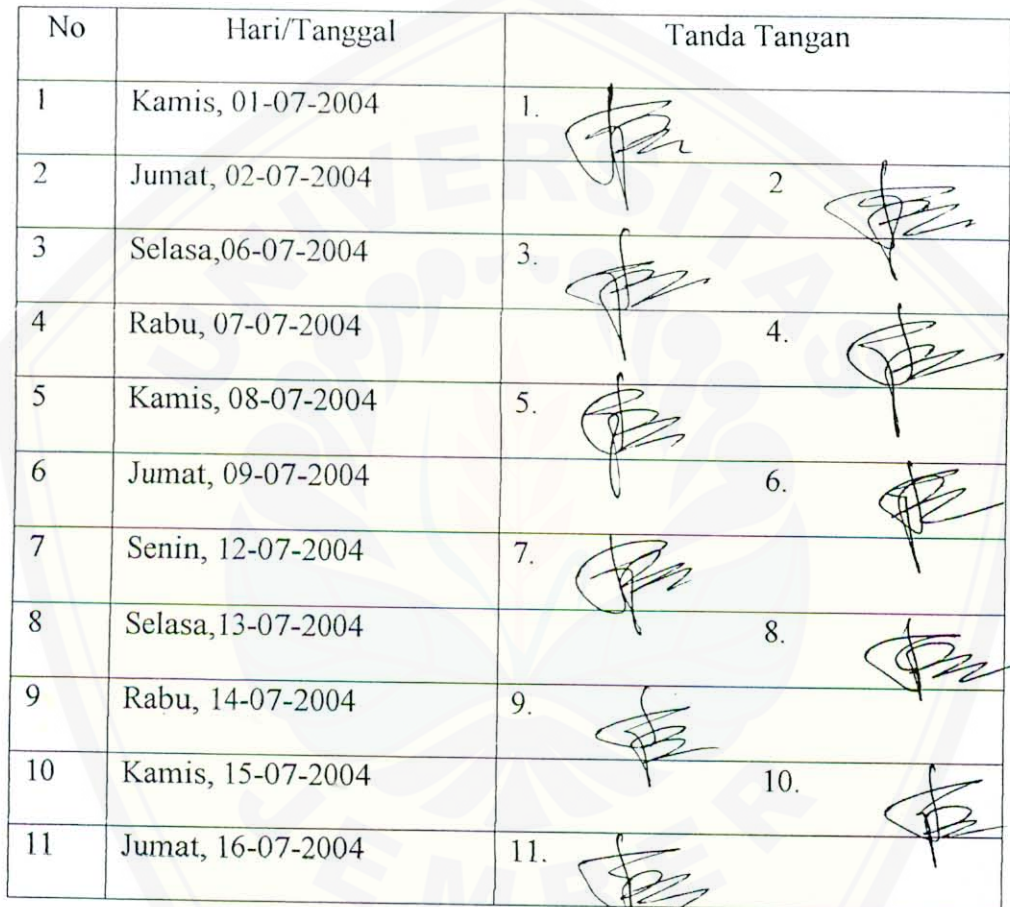 No Hari/Tanggal Tanda Tangan
1 Kamis, 01-07-2004 1.
2 Jumat, 02-07-2004 2
3 Selasa,06-07-2004 3.
4 Rabu, 07-07-2004 4.
5 Kamis, 08-07-2004 5.
6 Jumat, 09-07-2004 6.
7 Senin, 12-07-2004 7.
8 Selasa,13-07-2004 8.
9 Rabu, 14-07-2004 9.
10 Kamis, 15-07-2004 10.
11 Jumat, 16-07-2004 11.
UNIVERSITAS
JEMBER